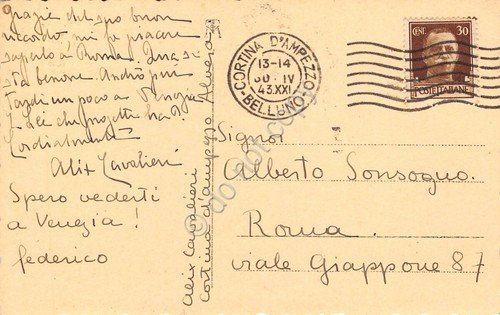 Grazie del suo buon
ricordo mi fa piacere
saperlo a Roma. Qua si
sta benone. Andrò più
tardi un poco a Venezia
E Lei che progetti ha?
Cordialmente
Alix Cavalieri
Spero vederti
a Venezia!
federico
Alix Cavalieri
Cortina d'Ampezzo
CORTINA D'AMPEZZO
13-14
30·IV
43.XXI
BELLUNO
CENT. 30
POSTE ITALIANE
Signor
Alberto Sonsogno
Roma
viale Giappone 87
do not copy